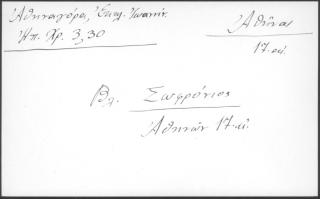 Ἀθηναγόρα, Ἐκκλ. Ἰωαννίν.
Ἠπ. Χρ. 3, 30
Ἀθῆναι
17. αἰ.
Βλ. Σωφρόνιος
Ἀθηνῶν 17. αἰ.